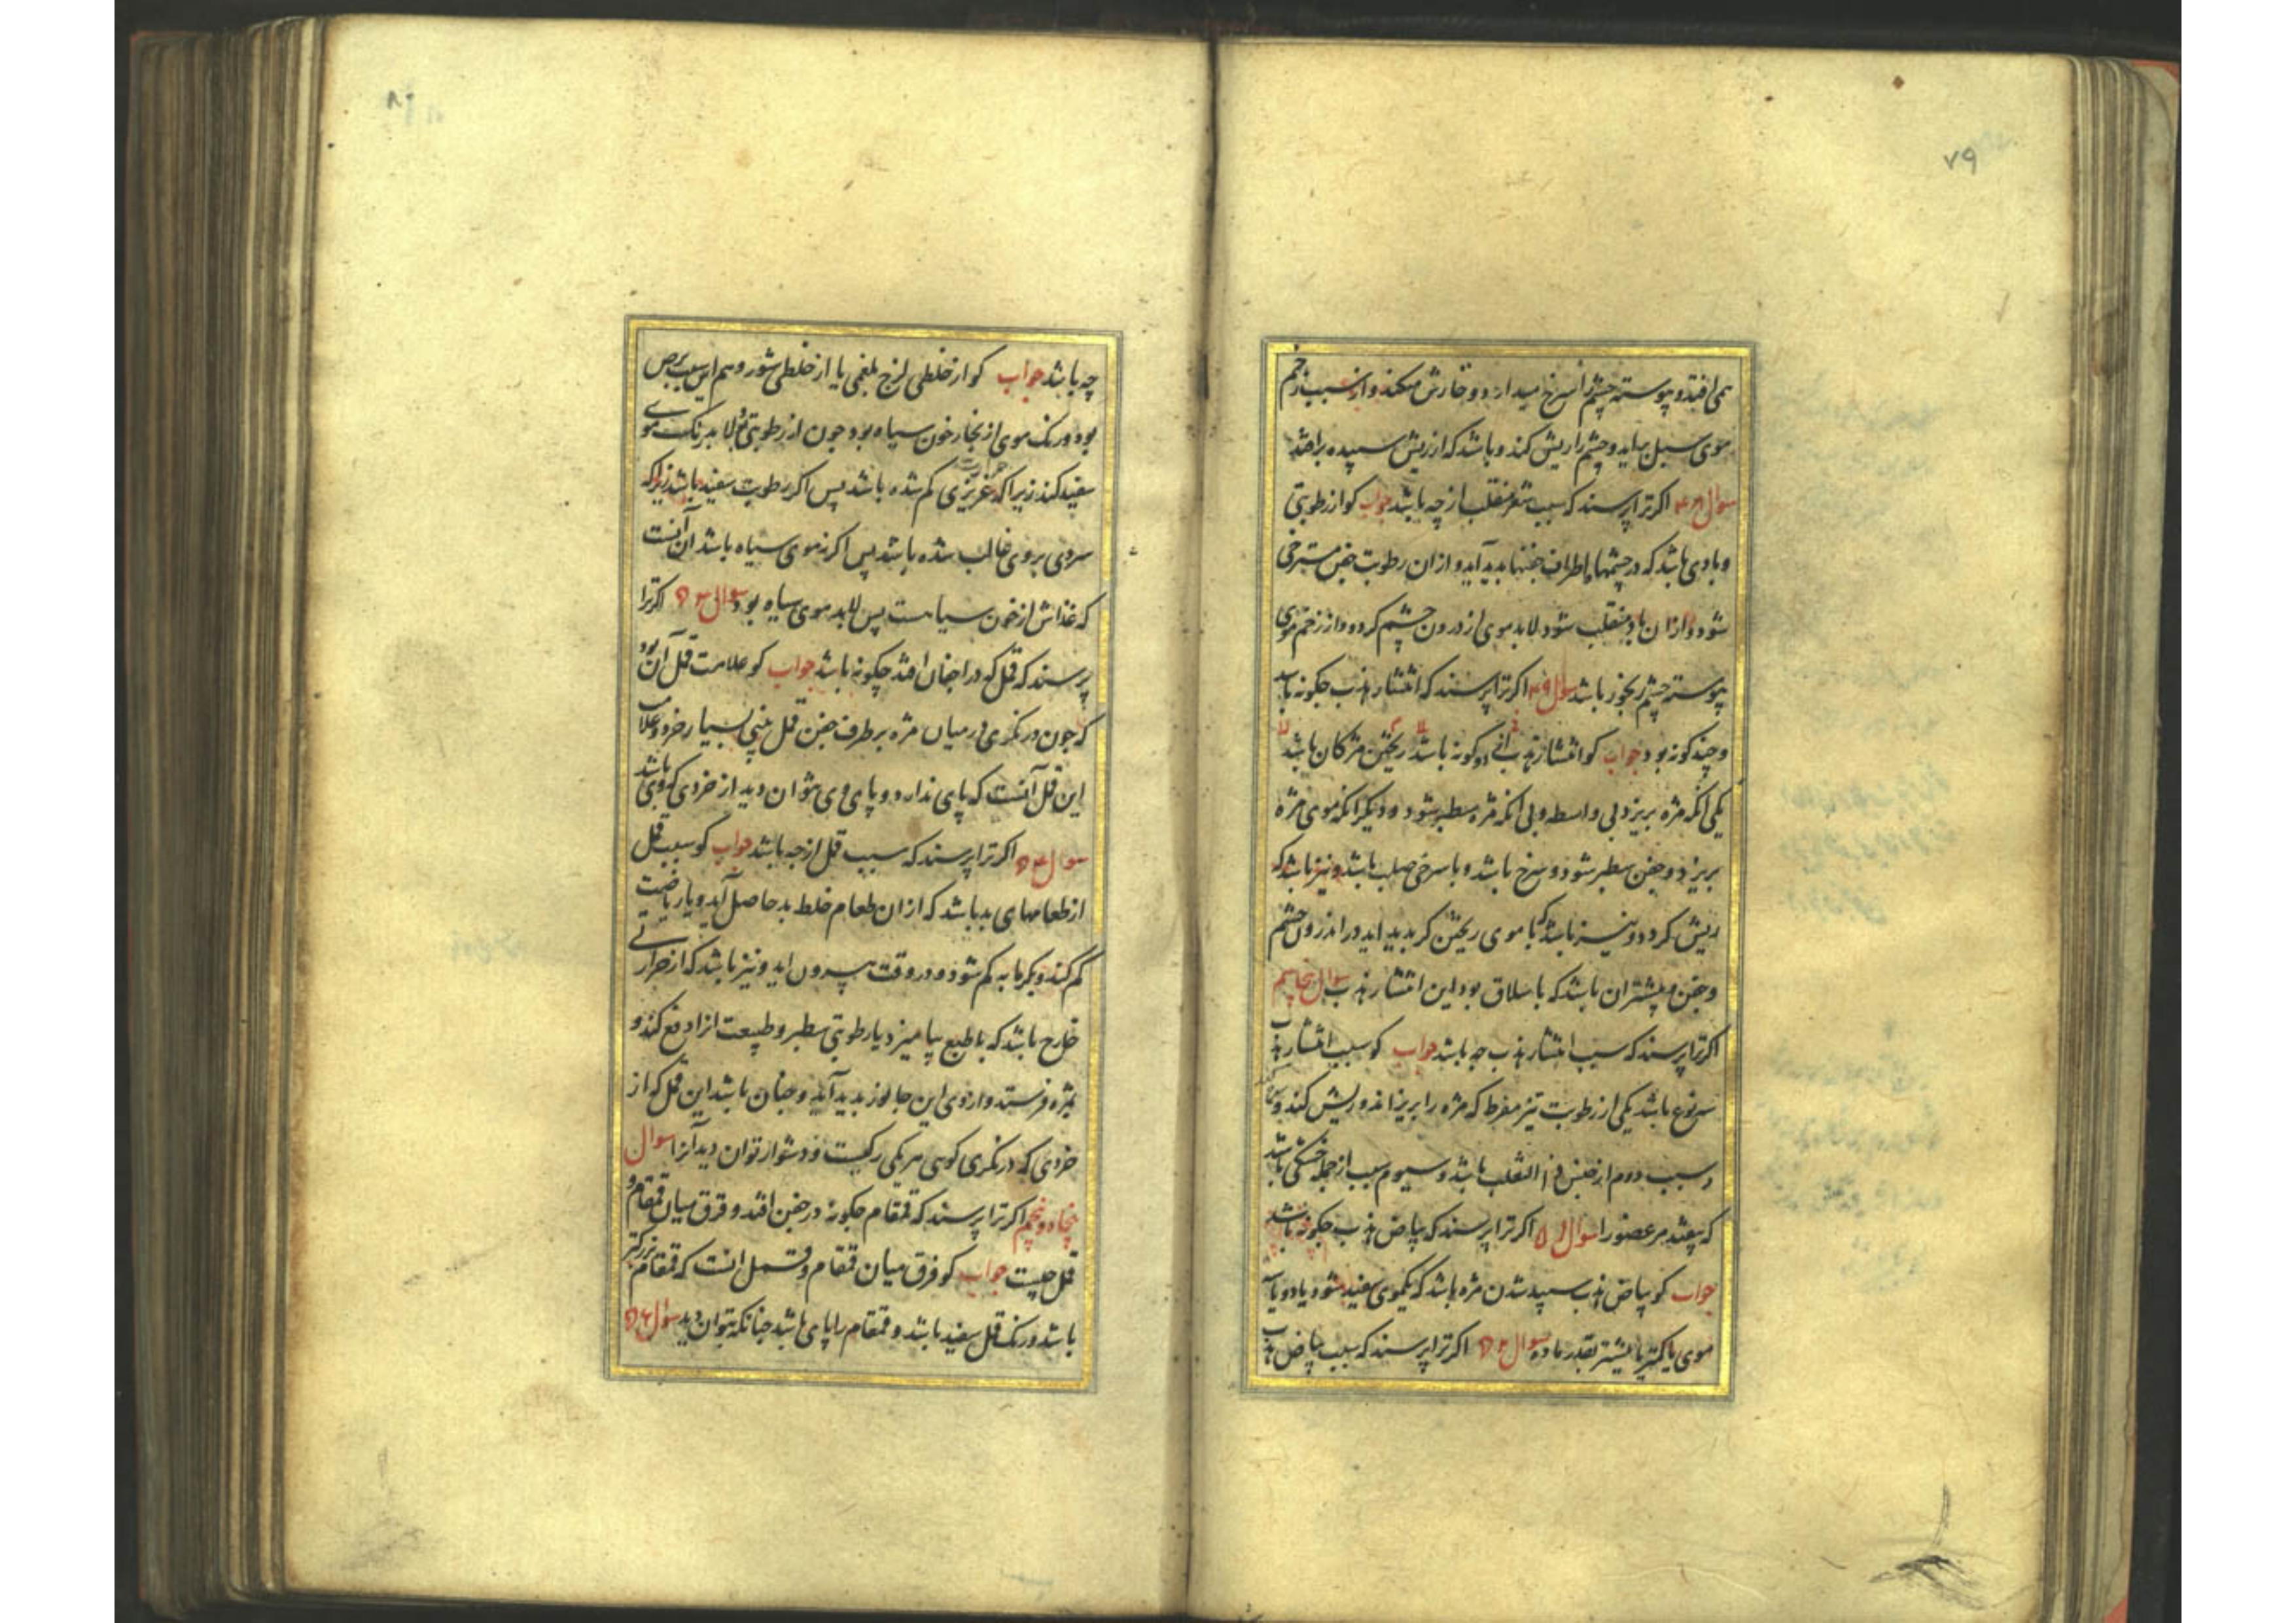 ۷۹
همی افتد و پیوسته چشم را سرخ میدارد و خارش میکند و از سبب زخم
موی سبل بیاید و چشم را ریش کند و باشد که از ریش سپیده برافتد
سوال ۴۸ اکر ترا پرسند که سبب شعر منقلب از چه باشد جواب کو از رطوبتی
و بادی باشد که در چشمها و اطراف جفنها پدید آید و از ان رطوبت جفن مسترخی
شود و از ان باد منقلب شود لابد موی از درون چشم کردد و از زخم موی
پیوسته چشم رنجور باشد سوال ۴۹ اکر ترا پرسند که انتشار هدب چکونه باشد
و چند کونه بود جواب کو انتشار هدب دو کونه باشد ریختن مژکان باشد
یکی انکه مژه بریزد بی واسطه و بی انکه مژه سطبر شود و دیکر انکه موی مژه
بریزد و جفن سطبر شود و سرخ باشد و با سرخی صلب باشد و نیز باشد که
ریش کردد و نیز باشد که با موی ریختن کر پدید اید در اندرون چشم
و جفن و بیشتر ان باشد که با سلاق بود این انتشار هدب سوال پنجاهم
اکر ترا پرسند که سبب انتشار هدب چه باشد جواب کو سبب انتشار هدب
سه نوع باشد یکی از رطوبت تیز مفرط که مژه را بریزاند و ریش کند و
و سبب دوم از جنس داء الثعلب باشد و سیوم سبب از جمله خشکی باشد
که بیفتد مر عضو را سوال ۵۱ اکر ترا پرسند که بیاض هدب چکونه باشد
جواب کو بیاض هدب سپید شدن مژه باشد که یکموی سفید شود یا دو یا سه
موی یا کمتر یا بیشتر بقدر ماده سوال ۵۲ اکر ترا پرسند که سبب بیاض هدب
۸۰
چه باشد جواب کو از خلطی لزج بلغمی یا از خلطی شور و هم این سبب برص
بود و رنک موی از بخار خون سیاه بود چون از رطوبتی لابد رنک موی
سفید کند زیرا که حرارت غریزی کم شده باشد پس اکر رطوبت سفید باشد زیرا که
سردی بر وی غالب شده باشد پس اکر نه موی سیاه باشد آن آنست
که غذاش از خون سیاست پس لابد موی سیاه بود سوال ۵۳ اکر ترا
پرسند که قمل که در اجفان افتد چکونه باشد جواب کو علامت قمل آن بود
که چون در نکری در میان مژه بر طرف جفن قمل بینی بسیار خرد و علامت
این قمل آنست که پای ندارد و پای وی نتوان دید از خردی که وی باشد
سوال ۵۴ اکر ترا پرسند که سبب قمل از چه باشد جواب کو سبب قمل
از طعامهای بد باشد که از ان طعام خلط بد حاصل آید و یا ریاضت
کم کند و بکرمابه کم شود و در وقت بیرون اید و نیز باشد که از حرارتی
خارج باشد که با طبع بیامیزد یا رطوبتی سطبر و طبیعت انرا دفع کند و
بمژه فرستد و از وی این جانور پدید آید و چنان باشد این قمل که از
خردی که در نکری کویی مر یکی ریکیست و دشوار توان دید آنرا سوال
پنجاه و پنجم اکر ترا پرسند که قمقام چکونه در جفن افتد و فرق میان قمقام و
قمل چیست جواب کو فرق میان قمقام و قمل انست که قمقام بزرکتر
باشد و رنک قمل سفید باشد و قمقام را پای باشد چنانکه بتوان دید سوال ۵۶